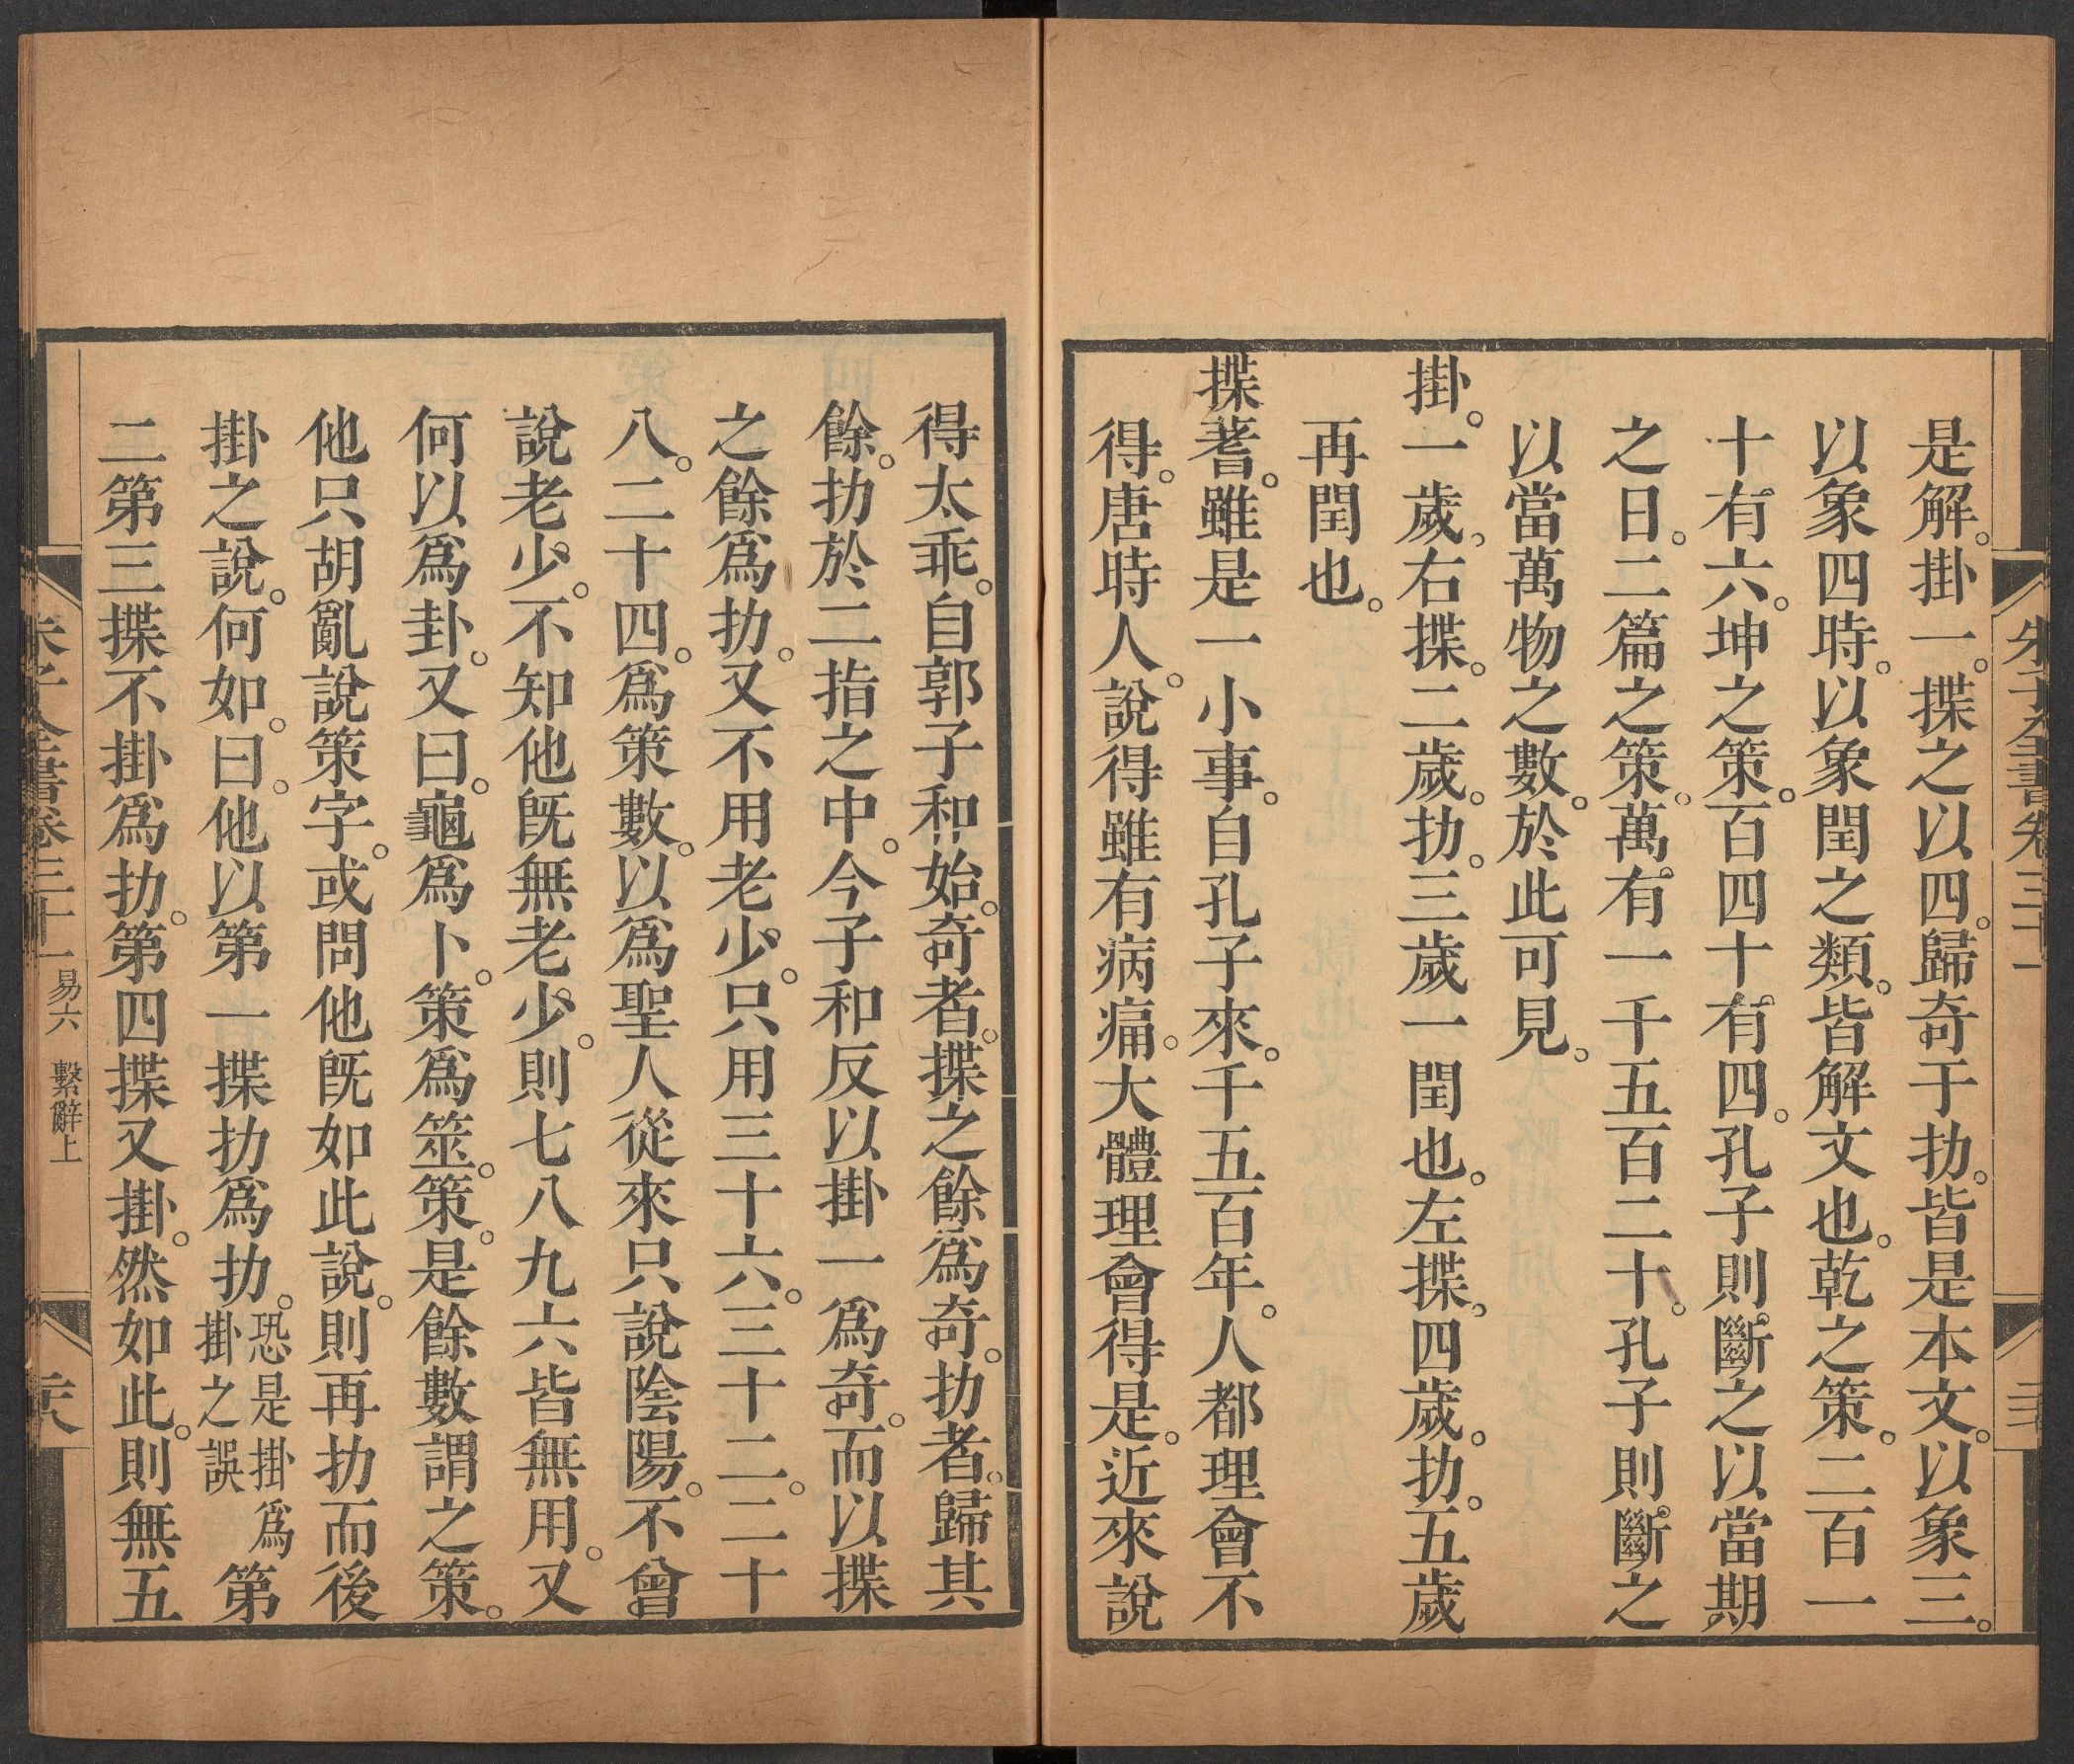 朱子全書卷三十一
是解。掛一。揲之以四。歸奇于扐。皆是本文。以象三。
以象四時。以象閏之類。皆解文也。乾之策。二百一
十有六。坤之策。百四十有四。孔子則斷之以當期
之日。二篇之策。萬有一千五百二十。孔子則斷之
以當萬物之數。於此可見。
掛。一歲。右揲。二歲。扐。三歲一閏也。左揲。四歲。扐。五歲
再閏也。
揲蓍。雖是一小事。自孔子來。千五百年。人都理會不
得。唐時人。說得雖有病痛。大體理會得是。近來說
得太乖。自郭子和始。奇者。揲之餘爲奇。扐者。歸其
餘。扐於二指之中。今子和反以掛一爲奇。而以揲
之餘爲扐。又不用老少。只用三十六。三十二。二十
八。二十四。爲策數。以爲聖人從來只說陰陽。不曾
說老少。不知他旣無老少。則七八九六皆無用。又
何以爲卦。又曰。龜爲卜。策爲筮。策。是餘數謂之策。
他只胡亂說策字。或問他旣如此說。則再扐而後
掛之說。何如。曰。他以第一揲扐爲扐。恐是掛爲掛之誤第
二第三揲不掛爲扐。第四揲又掛。然如此。則無五
朱子全書卷三十一 易六 繫辭上